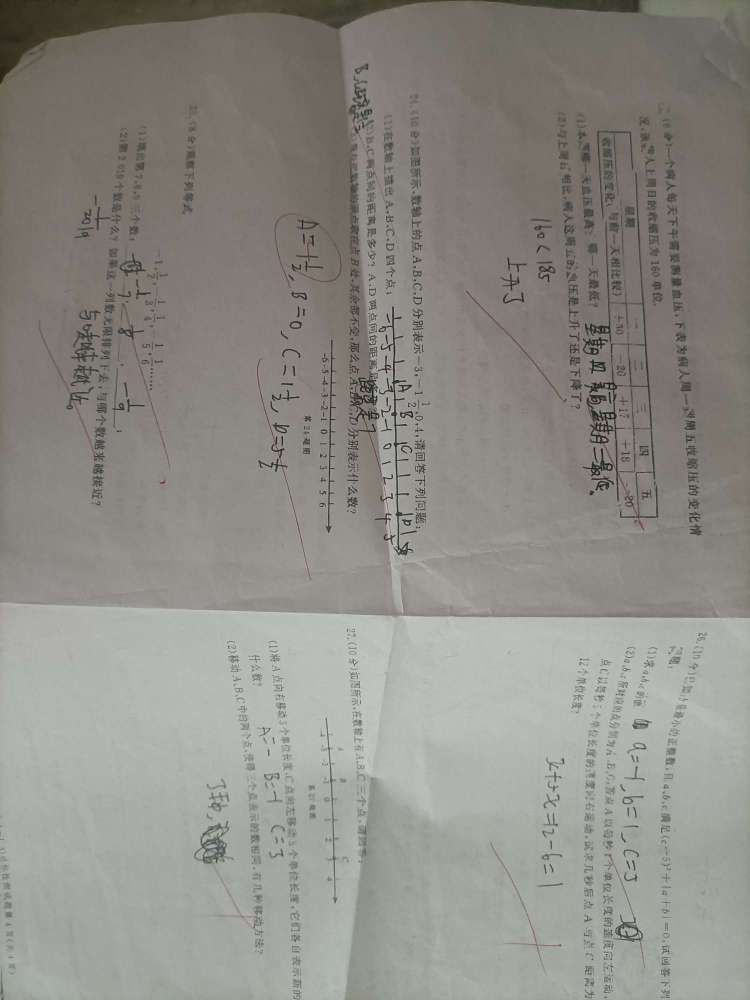 (8分)一个病人每天下午需要测量血压,下表为病人周一到周五收缩压的变化情
况,该病人上周日的收缩压为160单位.
星期 一 二 三 四 五
收缩压的变化(与前一天相比较) +30 -20 +17 +18 -20
(1)本周哪一天血压最高?哪一天最低?
(2)与上周日相比,病人这周五的血压是上升了还是下降了?
160<185
上升了
24.(10分)如图所示,数轴上的点A,B,C,D分别表示-3,-1 1/2,0,4,请回答下列问题:
(1)在数轴上描出A,B,C,D四个点;
-6 -5 -4 -3 -2 -1 0 1 2 3 4 5
(2)B,C两点间的距离是多少?A,D两点间的距离
那么点A,B,C,D分别表示什么数?
-6 -5 -4 -3 -2 -1 0 1 2 3 4 5 6
第24题图
A=1½, B=0, C=1½, D=5½
25.(8分)观察下列等式
-1, 1/2, -1/3, 1/4, -1/5, 1/6, ……
(1)填出第7,8,9三个数:
-1/7, 1/8, -1/9;
(2)第2 019个数是什么?如果这一列数无限排列下去,与哪个数越来越接近?
-1/2019
26.(10分)已知b是最小的正整数,且a,b,c满足(c-5)²+|a+b|=0,试回答下列
问题:
(1)求a,b,c的值
a=-1, b=1, C=5
(2)a,b,c所对应的点分别为A,B,C,若点A以每秒1个单位长度的速度向左运动,
点C以每秒5个单位长度的速度向右运动,试求几秒后点A与点C距离为
12个单位长度?
x+5x=12-6=1
27.(10分)如图所示,在数轴上有A,B,C三个点,请回答:
第27题图
(1)将A点向右移动3个单位长度,C点向左移动5个单位长度,它们各自表示新的
什么数?
A=- B=-1 C=3
(2)移动A,B,C中的两个点,使得三个点表示的数相同,有几种移动方法?
3种,